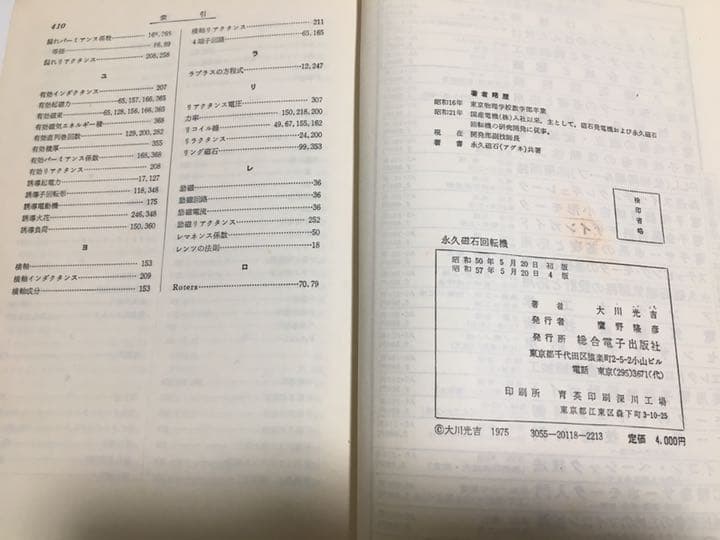 410
索引
漏れパーミアンス係数…………16, 765
等径…………16, 89
漏れリアクタンス…………208, 258
ユ
有効インダクタンス…………207
有効起磁力…………65, 157, 166, 365
有効磁束…………65, 128, 156, 166, 365
有効磁気エネルギー積…………368
有効直列巻回数…………129, 200, 282
有効積厚…………355
有効パーミアンス係数…………168, 368
有効リアクタンス…………208
誘導起電力…………17, 127
誘導子回転形…………118, 348
誘導電動機…………175
誘導火花…………246, 348
誘導負荷…………150, 360
ヨ
横軸…………153
横軸インダクタンス…………209
横軸成分…………153
横軸リアクタンス…………211
4端子回路…………65, 165
ラ
ラプラスの方程式…………12, 247
リ
リアクタンス電圧…………307
力率…………150, 218, 200
リコイル線…………49, 67, 155, 162
リラクタンス…………24, 200
リング磁石…………99, 353
レ
励磁…………36
励磁回路…………36
励磁電流…………36
励磁リアクタンス…………252
レマネンス係数…………50
レンツの法則…………18
ロ
Roters…………70, 79
著者略歴
昭和16年 東京物理学校数学部卒業
昭和21年 国産電機(株)入社以来，主として，磁石発電機および永久磁石
回転機の研究開発に従事。
現在 開発部副技師長
著書 永久磁石(アグネ)共著
検印省略
永久磁石回転機
昭和50年5月20日 初版
昭和57年5月20日 4版
著者 大川光吉
発行者 鷹野隆彦
発行所 総合電子出版社
東京都千代田区猿楽町2-5-2小山ビル
電話 東京(295)3671(代)
印刷所 育英印刷深川工場
東京都江東区森下町3-10-25
©大川光吉 1975 3055―20118―2213 定価 4,000円